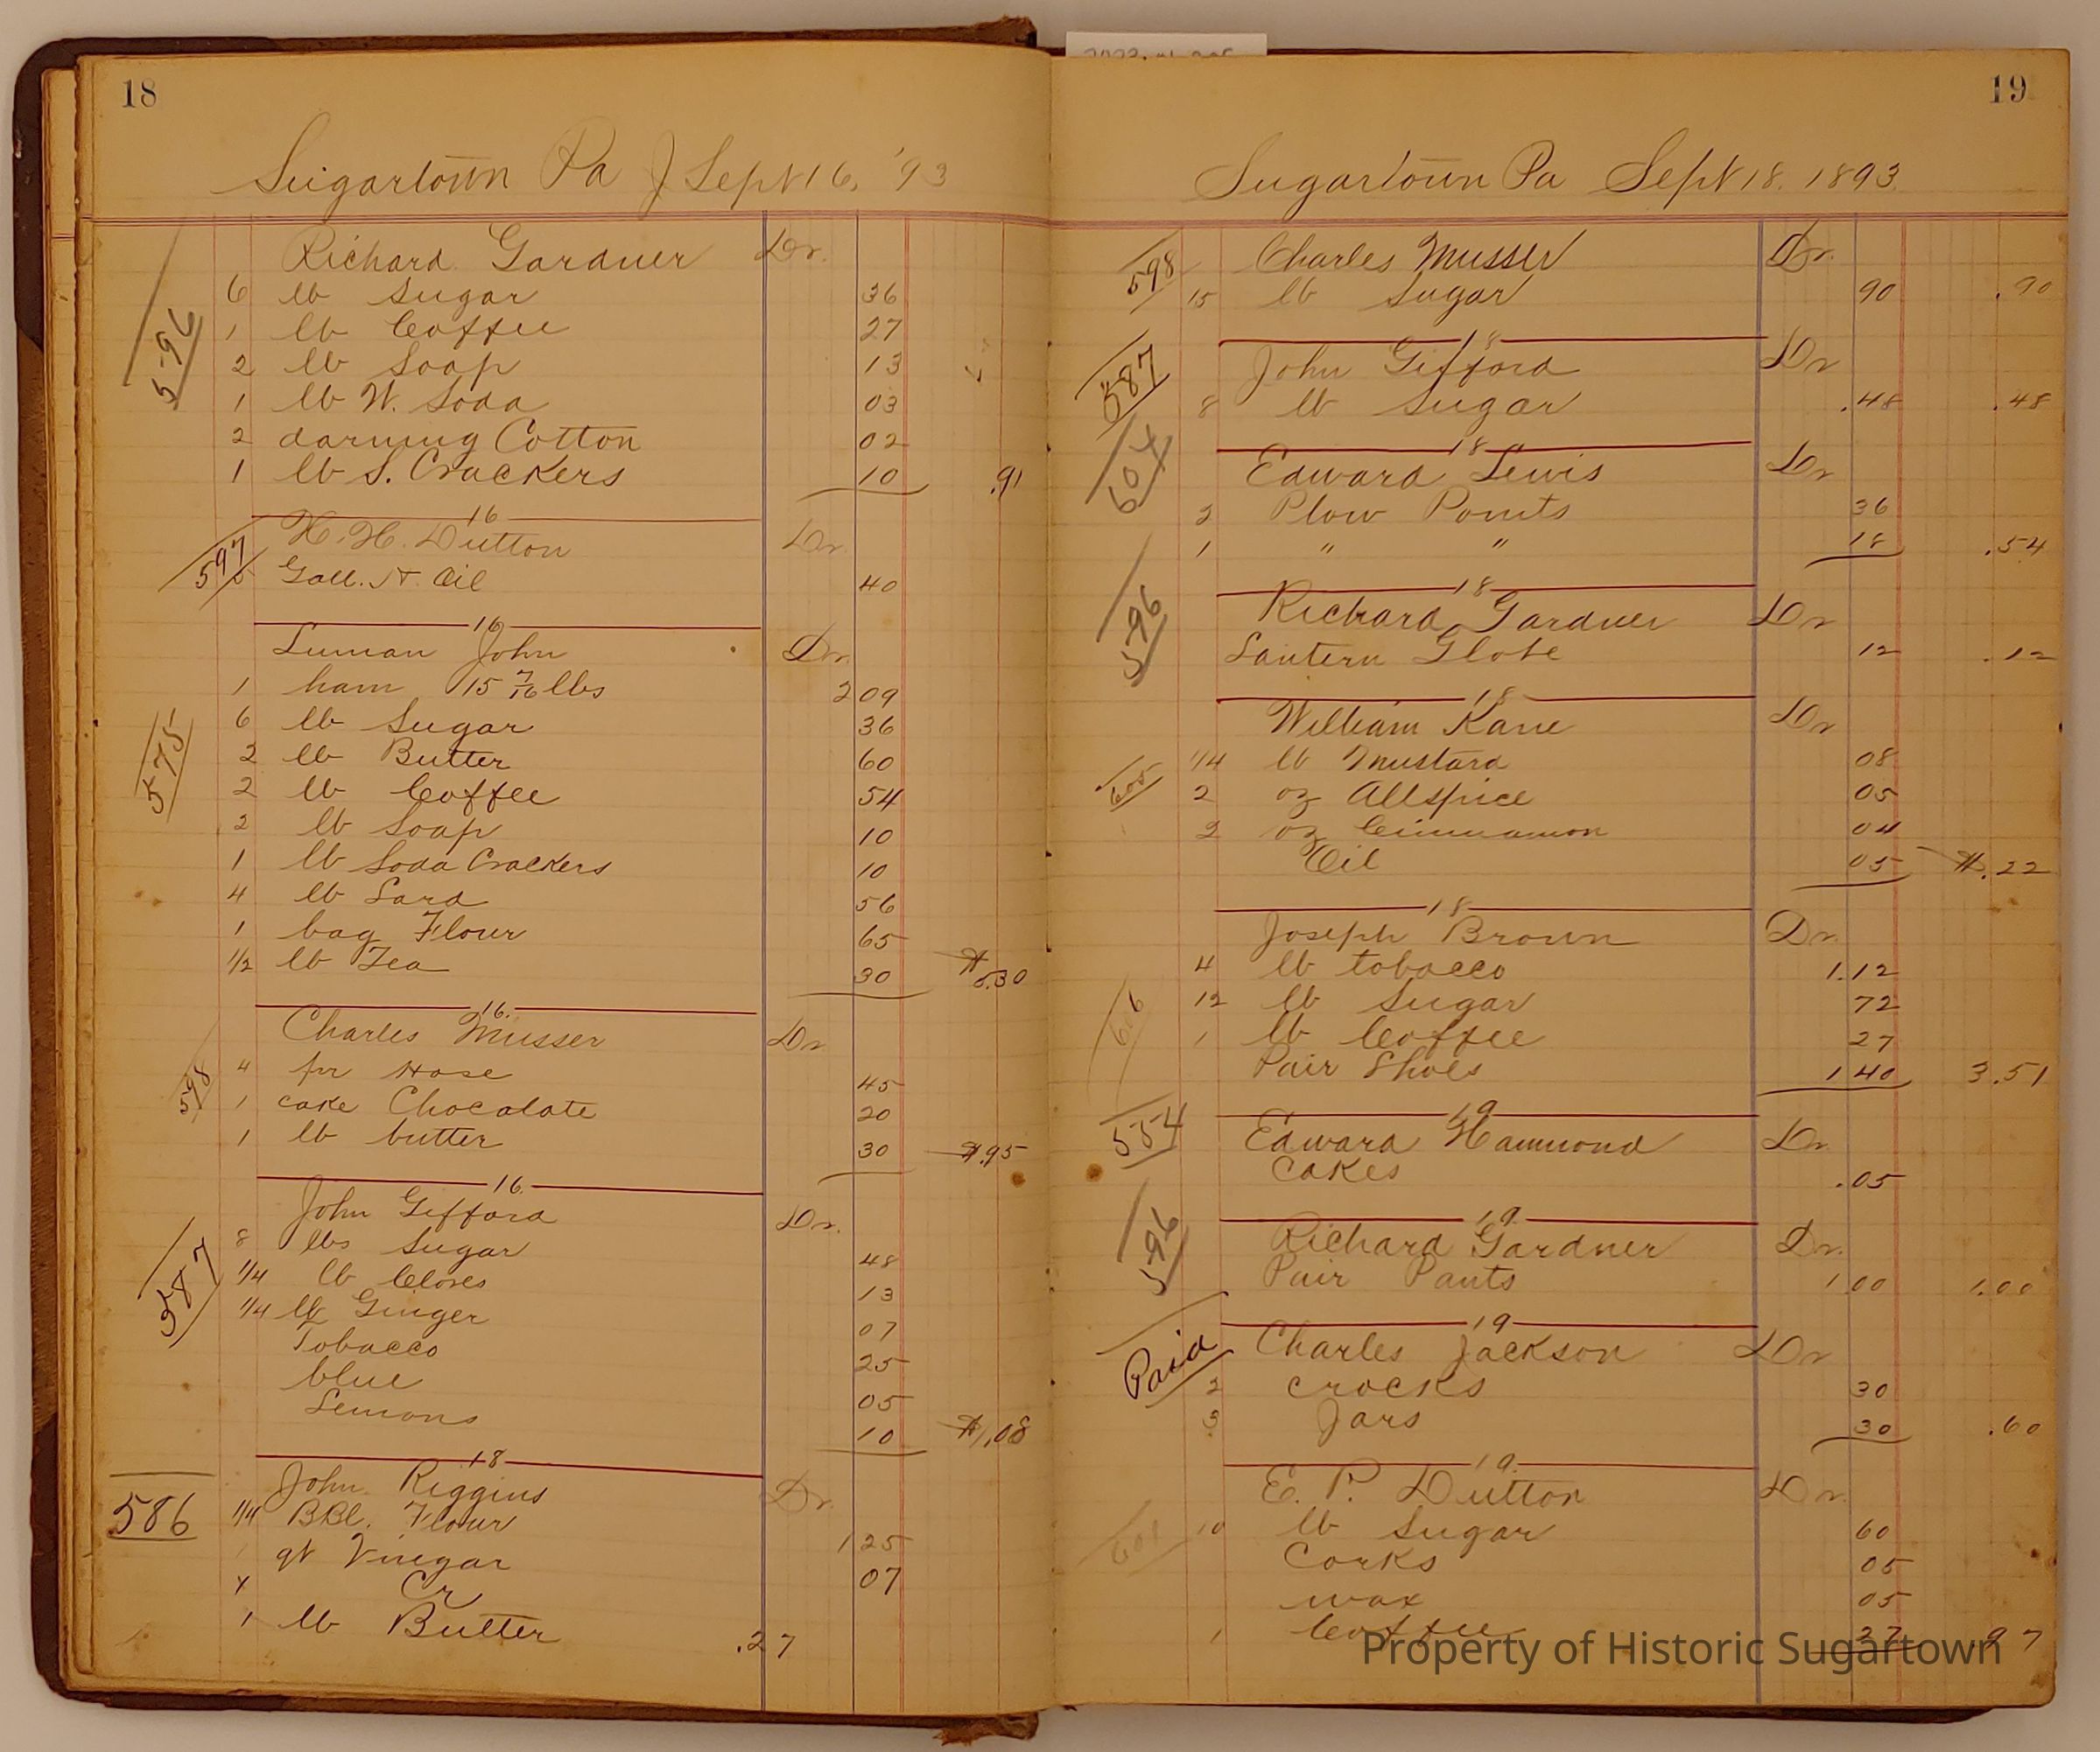 18
Sugartown Pa Sept 16, '93
Richard Gardner Dr.
596
6 lb Sugar 36
1 lb Coffee 27
2 lb Soap 13
1 lb W. Soda 03
2 darning Cotton 02
1 lb S. Crackers 10 .91
16
H. H. Dutton Dr.
597
Gall. H. Oil 40
16
Luman John Dr.
1 ham 15 7/16 lbs 2 09
6 lb Sugar 36
575
2 lb Butter 60
2 lb Coffee 54
2 lb Soap 10
1 lb Soda Crackers 10
4 lb Lard 56
1 bag Flour 65
1/2 lb Tea 30 $5.30
16.
Charles Musser Dr
598
4 pr Hose 45
1 cake Chocolate 20
1 lb butter 30 $.95
16.
John Gifford Dr.
587
8 lbs Sugar 48
1/4 lb Cloves 13
1/4 lb Ginger 07
Tobacco 25
blue 05
Lemons 10 $1.08
18
John Riggins Dr.
586
1/4 BBl. Flour 1 25
1 qt Vinegar 07
Cr
1 lb Butter .27
19
Sugartown Pa Sept 18. 1893.
598
Charles Musser Dr.
15 lb Sugar 90 .90
18
587
John Gifford Dr
8 lb Sugar .48 .48
18
604
Edward Lewis Dr
2 Plow Points 36
1 " " 18 .54
18
596
Richard Gardner Dr
Lantern Globe 12 .12
18
William Kane Dr
605
1/4 lb Mustard 08
2 oz Allspice 05
2 oz Cinnamon 04
Oil 05 $.22
18
Joseph Brown Dr.
606
4 lb tobacco 1.12
12 lb Sugar 72
1 lb Coffee 27
Pair Shoes 1 40 3.51
19
554
Edward Hammond Dr.
Cakes .05
19.
596
Richard Gardner Dr.
Pair Pants 1 00 1.00
19
Paid
Charles Jackson Dr
2 crocks 30
3 Jars 30 .60
19.
E. P. Dutton Dr.
601
10 lb Sugar 60
Corks 05
wax 05
1 Coffee 27 .97
Property of Historic Sugartown